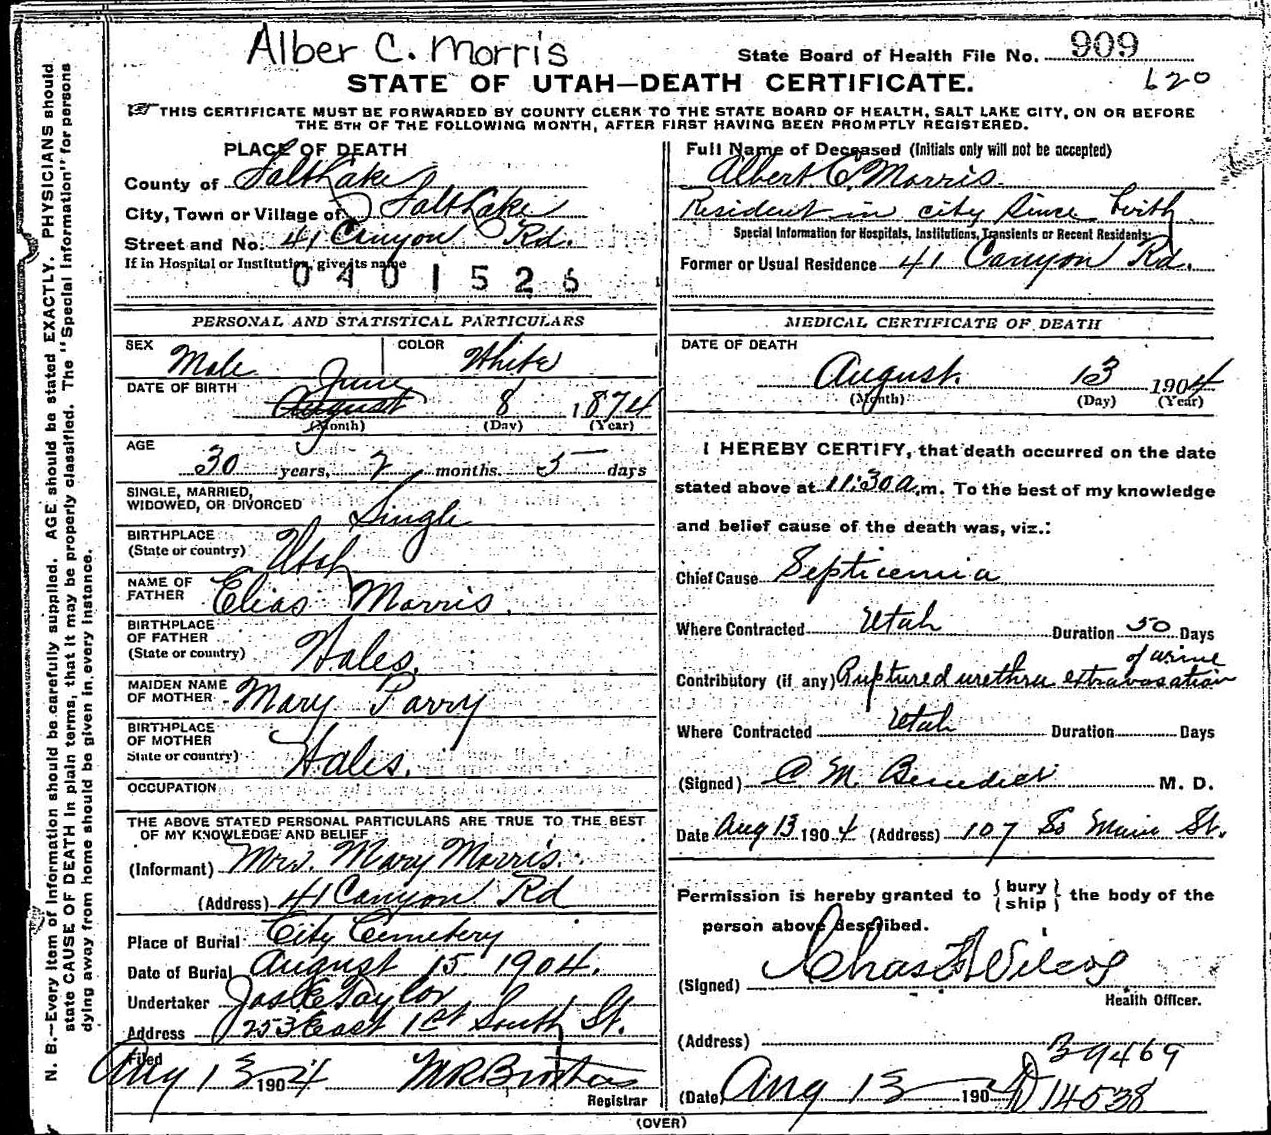 Alber C. Morris
State Board of Health File No. 909
STATE OF UTAH—DEATH CERTIFICATE.
620
THIS CERTIFICATE MUST BE FORWARDED BY COUNTY CLERK TO THE STATE BOARD OF HEALTH, SALT LAKE CITY, ON OR BEFORE
THE 5TH OF THE FOLLOWING MONTH, AFTER FIRST HAVING BEEN PROMPTLY REGISTERED.
N. B.—Every item of information should be carefully supplied. AGE should be stated EXACTLY. PHYSICIANS should
state CAUSE OF DEATH in plain terms, that it may be properly classified. The "Special Information" for persons
dying away from home should be given in every instance.
PLACE OF DEATH
County of Salt Lake
City, Town or Village of Salt Lake
Street and No. 41 Canyon Rd.
If in Hospital or Institution, give its name
0401526
PERSONAL AND STATISTICAL PARTICULARS
SEX Male COLOR White
June
DATE OF BIRTH August 8 1874
(Month) (Day) (Year)
AGE
30 years, 2 months 5 days
SINGLE, MARRIED,
WIDOWED, OR DIVORCED Single
BIRTHPLACE
(State or country) Utah
NAME OF
FATHER Elias Morris.
BIRTHPLACE
OF FATHER
(State or country) Wales.
MAIDEN NAME
OF MOTHER Mary Parry
BIRTHPLACE
OF MOTHER
State or country) Wales.
OCCUPATION
THE ABOVE STATED PERSONAL PARTICULARS ARE TRUE TO THE BEST
OF MY KNOWLEDGE AND BELIEF
(Informant) Mrs. Mary Morris.
(Address) 41 Canyon Rd
Place of Burial City Cemetery
Date of Burial August 15 1904.
Undertaker Jos E Taylor
Address 253 East 1st South St.
Filed
Aug 13 1904
Registrar
Full Name of Deceased (Initials only will not be accepted)
Albert C. Morris.
Resident in city since birth
Special Information for Hospitals, Institutions, Transients or Recent Residents:
Former or Usual Residence 41 Canyon Rd.
MEDICAL CERTIFICATE OF DEATH
DATE OF DEATH
August. 13 1904
(Month) (Day) (Year)
I HEREBY CERTIFY, that death occurred on the date
stated above at 11:30 a.m. To the best of my knowledge
and belief cause of the death was, viz.:
Chief Cause Septicemia
Where Contracted Utah Duration 50 Days
of urine
Contributory (if any) Ruptured urethra extravasation
Where Contracted Utah Duration Days
(Signed) C M Benedict M. D.
Date Aug 13 1904 (Address) 107 So Main St.
Permission is hereby granted to (bury) (ship) the body of the
person above described.
(Signed) Chas F Wilcox
Health Officer.
(Address)
39469
(Date) Aug 13 1904 D 14538
(OVER)